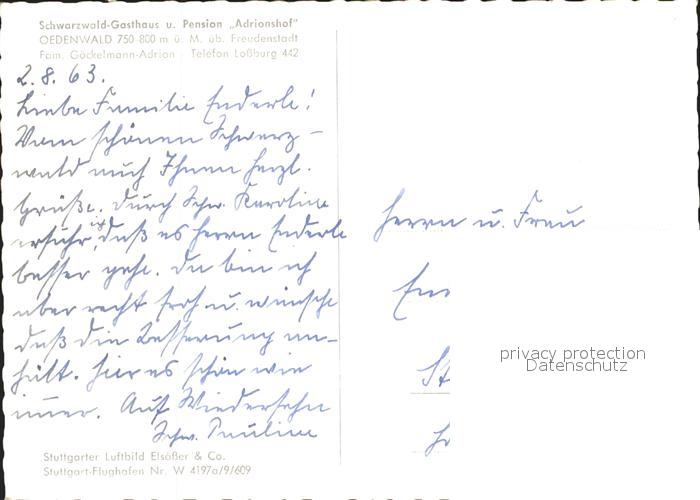 Schwarzwald-Gasthaus u. Pension „Adrionshof"
OEDENWALD 750-800 m ü. M. üb. Freudenstadt
Fam. Göckelmann-Adrion · Telefon Loßburg 442
2.8.63.
Liebe Familie Enderle!
Vom schönen Schwarz-
wald auch Ihnen herzl.
Grüße. Durch Schw. Karoline
erfuhr ich, daß es Herrn Enderle
besser gehe. Da bin ich
aber recht froh u. wünsche
daß die Besserung an-
hält. Hier es schön wie
immer. Auf Wiedersehn
Schw. Pauline
Herrn u. Frau
En
St
privacy protection
Datenschutz
Stuttgarter Luftbild Elsäßer & Co.
Stuttgart-Flughafen Nr. W 4197a/9/609